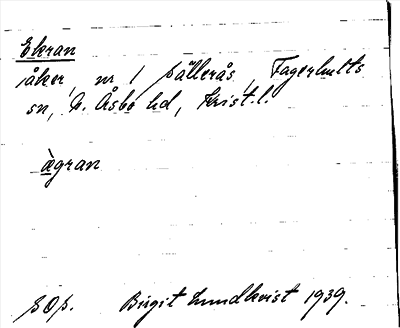 Ekran
åker, nr 1 Källerås, Fagerhults
sn, N. Åsbo hd, Krist. l.
ægran
Birgit Lundkvist 1939.